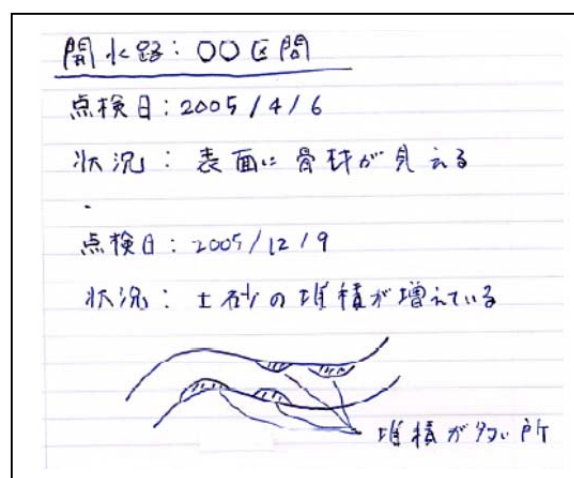 開水路：〇〇区間
点検日：2005/4/6
状況：表面に骨材が見える
・
点検日：2005/12/9
状況：土砂の堆積が増えている
堆積が多い所